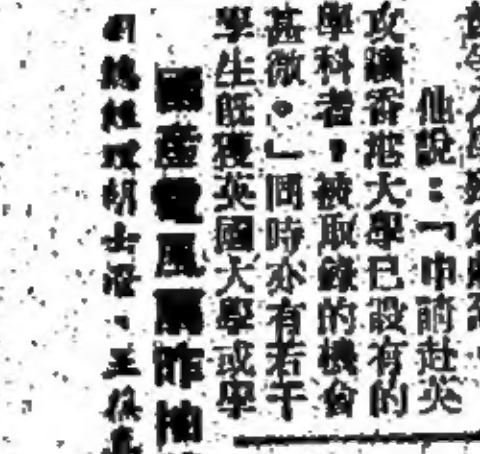 他說：「申請赴英
攻讀香港大學已設有的
學科者，被取錄的機會
甚微。」同時亦有若干
學生既獲英國大學或學
國產電風扇昨抽
總經理胡士澄、王